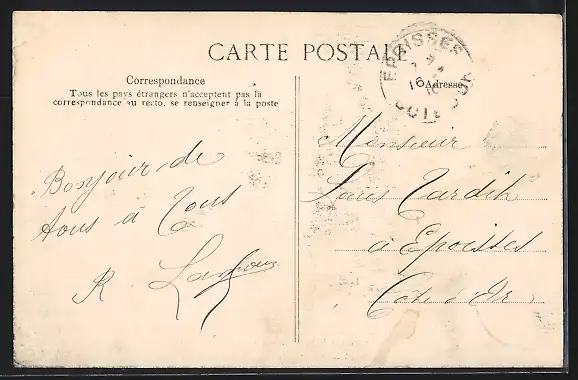 CARTE POSTALE
Correspondance
Tous les pays étrangers n'acceptent pas la
correspondance au recto, se renseigner à la poste
Adresse
EPOISSES
16
COTE D'OR
Bonjour de
tous à Tous
R.
Monsieur
Tardih
à Epoisses
Côte d'Or